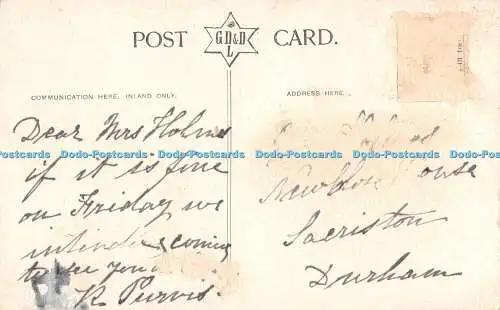 POST CARD.
G D&D
L
COMMUNICATION HERE, INLAND ONLY.
ADDRESS HERE.
Dear Mrs Holmes
if it is fine
on Friday we
intend coming
to see you
R Purvis.
Holmes
House
Sacriston
Durham
Dodo-Postcards Dodo-Postcards Dodo-Postcards Dodo-Postcards Dodo-Postcards